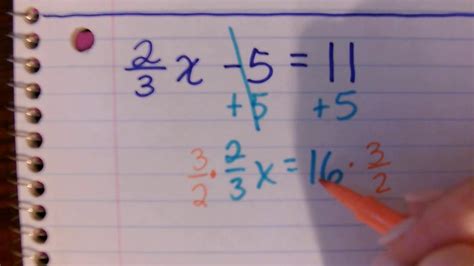 2/3 x - 5 = 11
+5 +5
3/2 · 2/3 x = 16 · 3/2